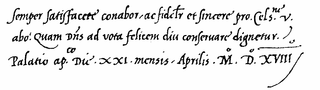 semper satisfacere conabor, ac fidelr et sincere pro. Cels.ne v.
abo. Quam Dns ad vota felicem diu conservare dignetur.
Palatio ap.co Die. XXI. mensis. Aprilis. M.o D.o XVIII